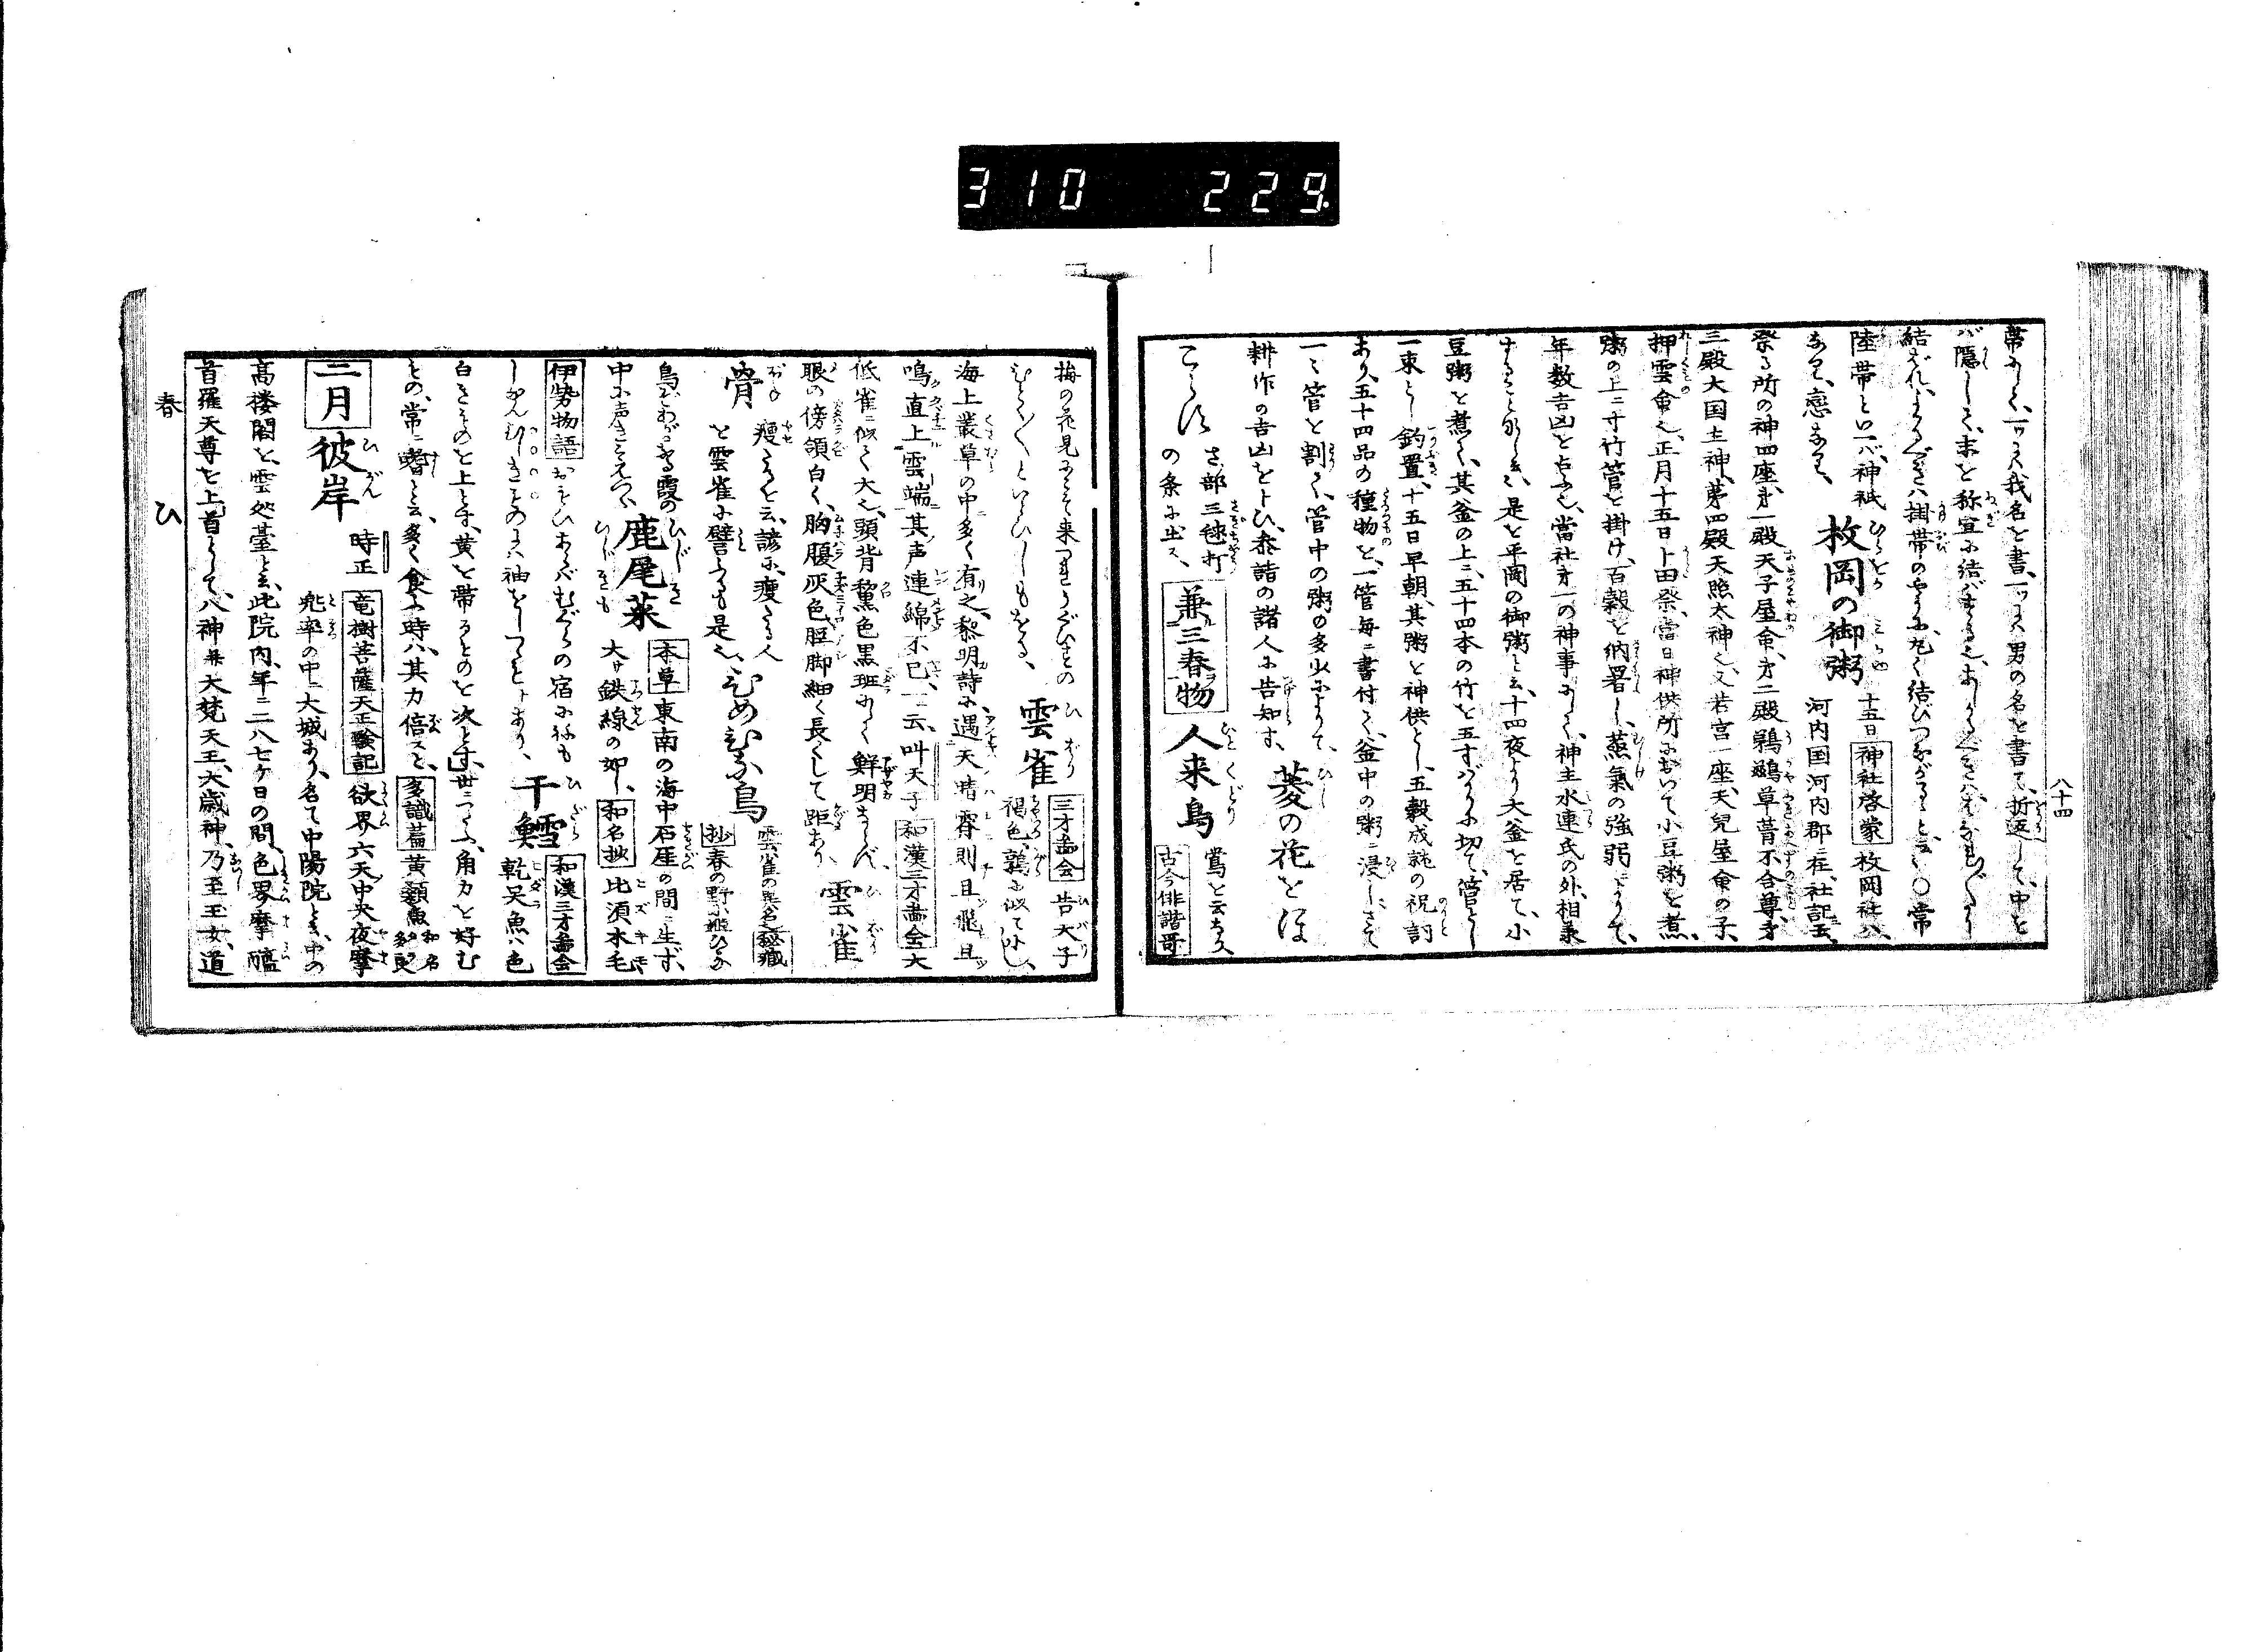 310 229
八十四
帯にして、一ツハ我名を書、一ツハ男の名を書て、折返して、中を
バ隠して、末を称宜に結バするを
結ばれ、掛帯のやうに、丸く結びつながると云。〇常
陸帯といへバ、神祇
なり、恋なり、
枚岡の御粥 十五日 神社啓蒙 枚岡社ハ、
河内国河内郡ニ在、社記云、
祭る所の神四座、第一殿天子屋命、第二殿鵜鷀草葺不合尊、第
三殿大国主神、第四殿天照太神也、又若宮一座、天児屋命の子、
押雲命也、正月十五日卜田祭、當日神供所において小豆粥を煮、
粥の上ニ竹管を掛け、百穀を納署し、蒸氣の強弱によりて、
年数吉凶を占ふ也、當社第一の神事にして、神主水連氏の外、相兼
することなしと、是を平岡の御粥と云、十四夜より大釜を居て、小
豆粥を煮て、其釜の上ニ、五十四本の竹を五寸バかりに切て、管とし
一束として釣置、十五日早朝、其粥を神供とし、五穀成就の祝詞
あり、五十四品の種物を、一管毎ニ書付て、釜中の粥ニ浸しさて
一々管を割て、管中の粥の多少によりて、
耕作の吉凶をトひ、参詣の諸人に告知す、
菱の花をほ
こらす さ部三毬打
の条に出ス、
兼三春物 人来鳥 鴬を云なり
古今俳諧哥
梅の花見にこそ来つれうぐひすの
ひとく〳〵といとひしもをる、
雲雀 三才啚会 告天子
褐色、鶉に似て小し、
海上叢草の中多く有之、黎明詩に遇天晴霽則且飛且
鳴直上雲端其声連綿不已、一云、叫天子 和漢三才啚会 大
低雀ニ似て大也、頭背黧黒色黒斑にして鮮明ならず、
眼の傍頷白く、胸腹灰色脛脚細く長くして距あり、
雲雀
骨 痩たるを云、諺に、痩たる人
を雲雀に譬ふるも是也、
ひめひな鳥 雲雀の異名也 秘蔵
抄 春の野に遊ひひな
鳥がねかすみ霞の
中に声きこえつゝ、
鹿尾菜 本草 東南の海中石厓の間ニ生ず、
大サ鉄線の如し、 和名抄 比須木毛
伊勢物語 おもひあらバむぐらの宿にねも
しなんひじきものには袖をしつゝもとあり、
干鱈 和漢三才啚会
乾呉魚ハ色
白きものを上とす、黄を帯るものを次とす、世ニつたふ、角力を好む
もの、常ニ嗜と云、多く食ふ時ハ、其力倍スと、 多識篇 黄顙魚 和名多良
二月 彼岸 時正 竜樹菩薩天正驗記 欲界六天中央夜摩
兜率の中ニ大城あり、名て中陽院と云、中の
高楼閣を、雲処臺と云、此院内、年ニ二八七ヶ日の間、色界摩醯
首羅天尊を上首として、八神并大梵天王、大歳神、乃至王女、道
春 ひ